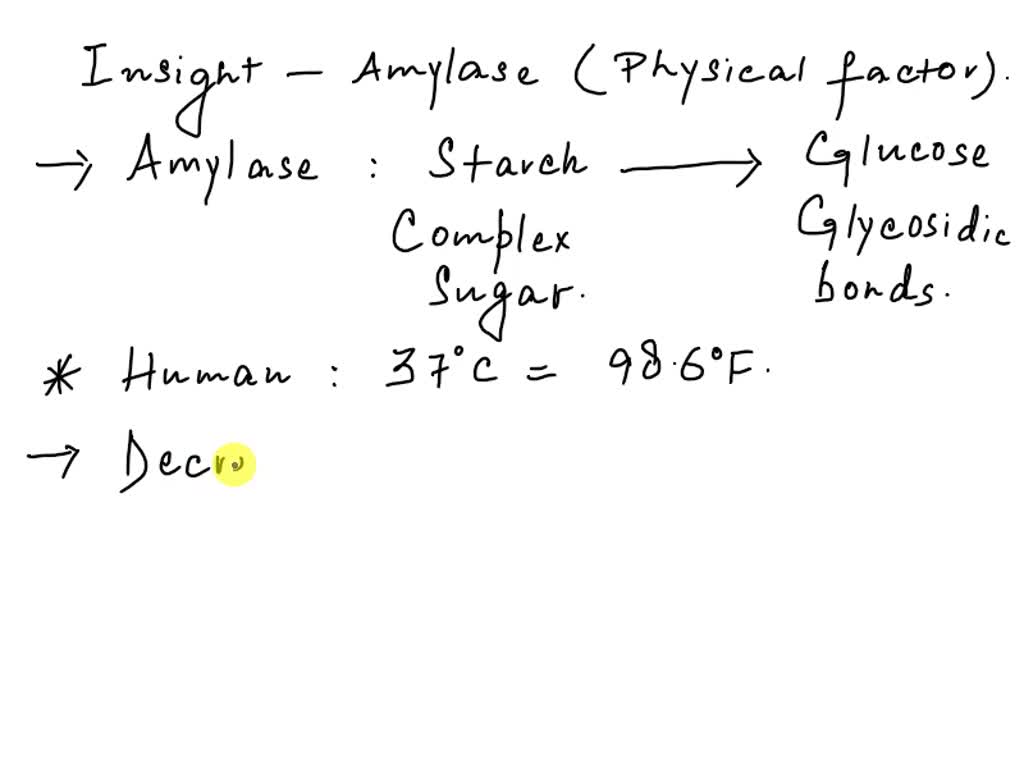 Insight - Amylase (Physical factor).
→ Amylase : Starch → Glucose
Complex Glycosidic
Sugar. bonds.
* Human : 37°C = 98.6°F.
→ Decr